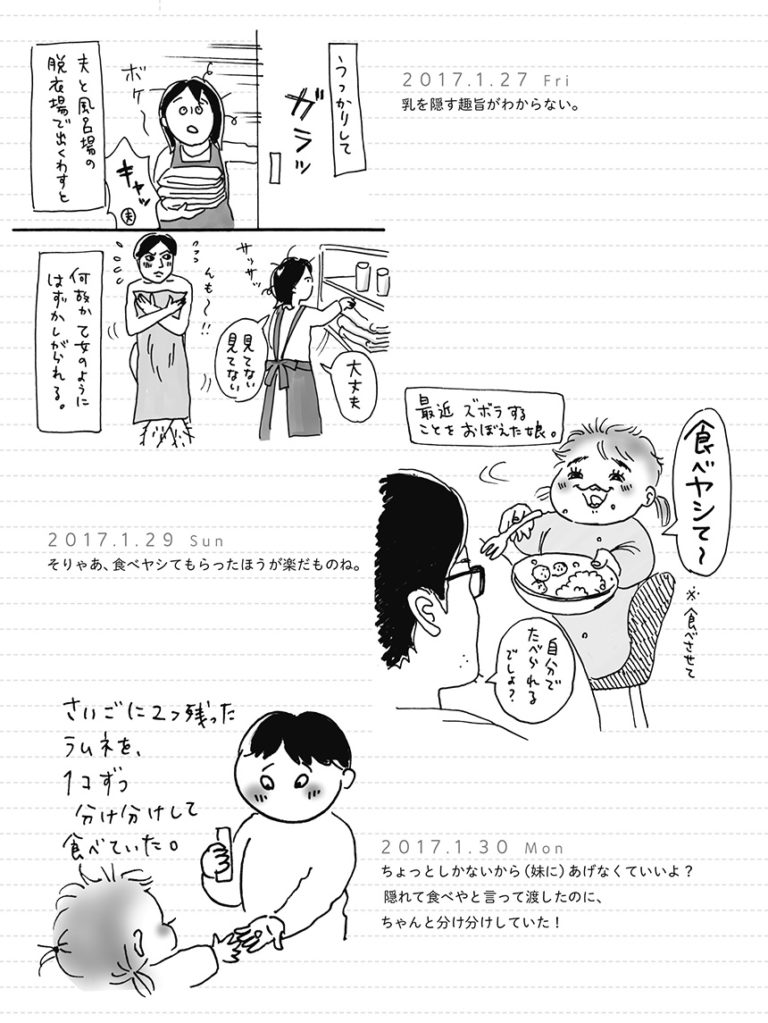 2017.1.27 Fri
乳を隠す趣旨がわからない。
うっかりして
ガラッ
ボケ〜
夫と風呂場の
脱衣場で出くわすと
キャッ
夫
サッサッ
んも〜!!
見てない
見てない
大丈夫
何故か乙女のように
はずかしがられる。
最近 ズボラする
ことをおぼえた娘。
食べヤシて〜
※食べさせて
自分で
たべられる
でしょ?
2017.1.29 Sun
そりゃあ、食べヤシてもらったほうが楽だものね。
さいごに2つ残った
ラムネを、
1コずつ
分け分けして
食べていた。
2017.1.30 Mon
ちょっとしかないから(妹に)あげなくていいよ?
隠れて食べやと言って渡したのに、
ちゃんと分け分けしていた!